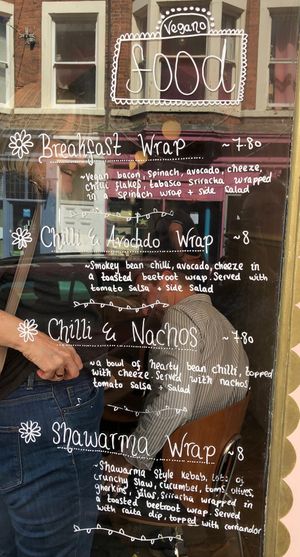 Vegano
food
Breakfast Wrap ~7.80
~Vegan bacon, spinach, avocado, cheeze,
chilli flakes, tabasco sriracha wrapped
in a spinach wrap + side salad
Chilli & Avochado Wrap ~8
~Smokey bean chilli, avocado, cheeze in
a toasted beetroot wrap. Served with
tomato salsa + side salad
Chilli & Nachos ~7.80
a bowl of hearty bean chilli, topped
with cheeze. Served with nachos,
tomato salsa + salad
Shawarma Wrap ~8
~Shawarma style kebab, lots of
crunchy slaw, cucumber, toms, olives,
gherkins, jalas, sriracha wrapped in
a toasted beetroot wrap. Served
with raita dip, topped with corriandor